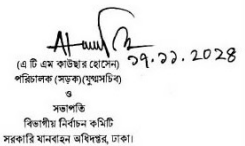 ১৭.১১.২০২৪
(এ টি এম কাউছার হোসেন)
পরিচালক (সড়ক)(যুগ্মসচিব)
ও
সভাপতি
বিভাগীয় নির্বাচন কমিটি
সরকারি যানবাহন অধিদপ্তর, ঢাকা।